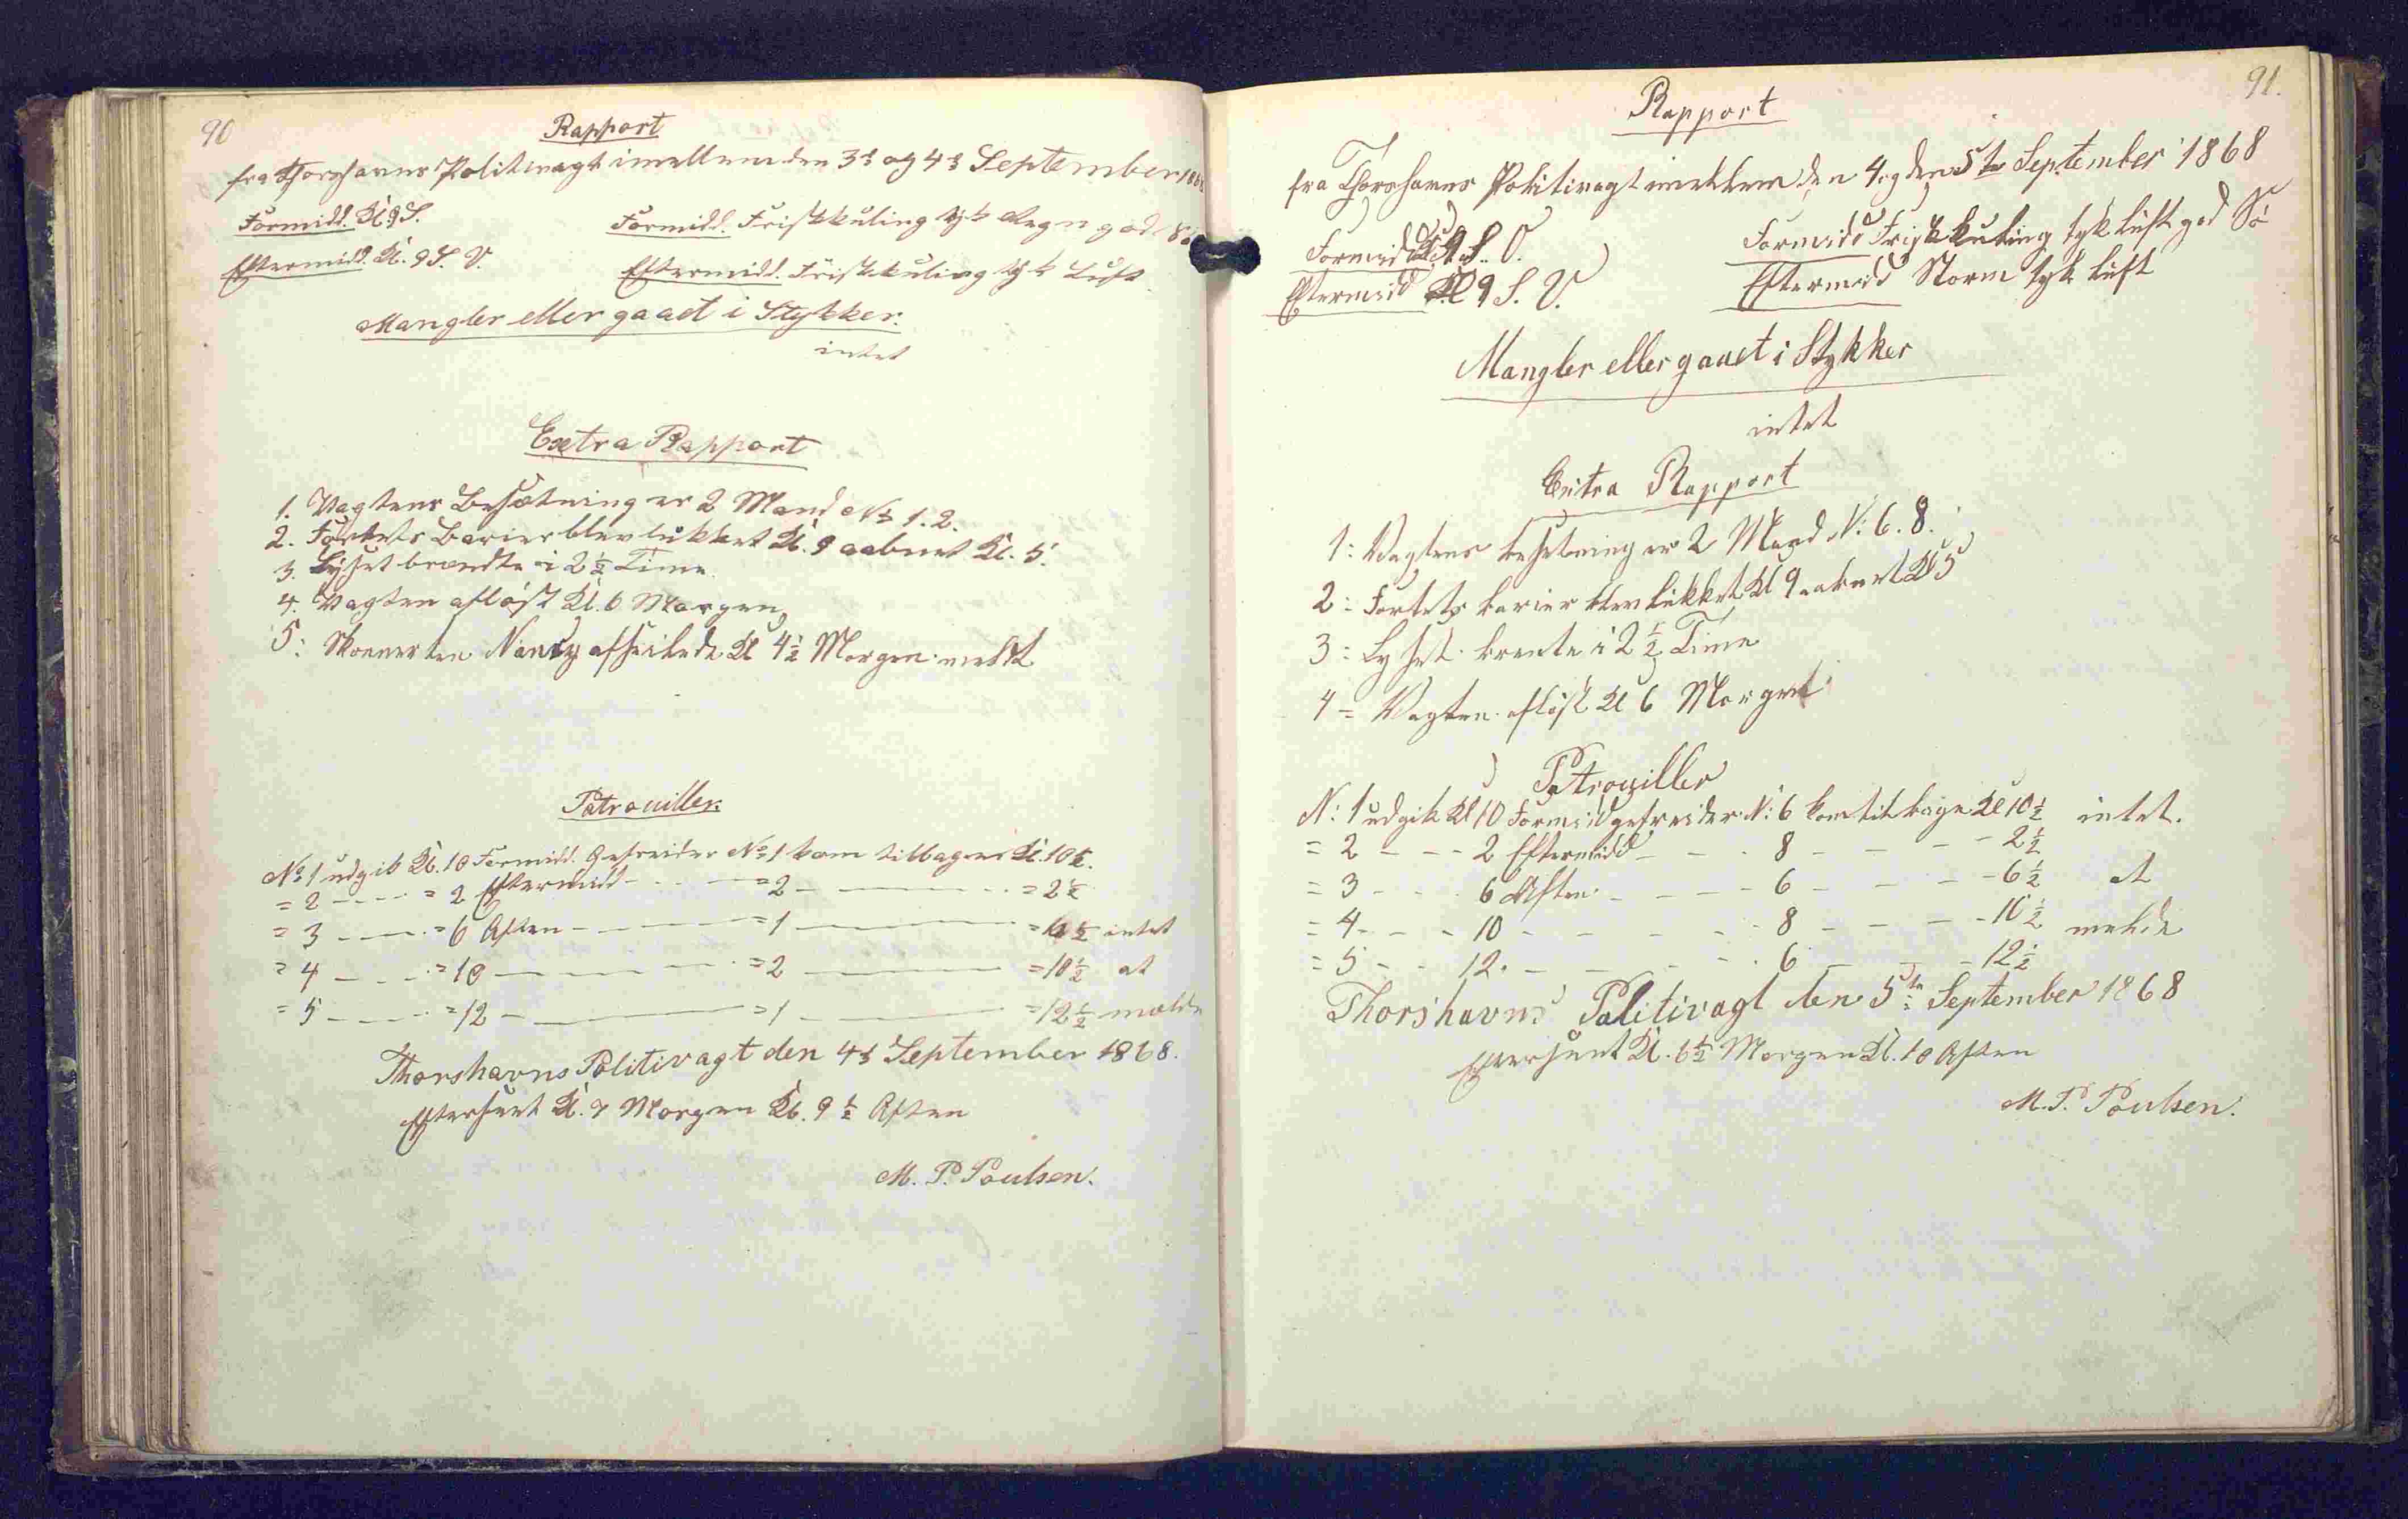 90
Rapport
fra Thorshavns Politivagt imellem den 3d og 4d September 1868
Formidd. Kl. 9 S.
Formidd. Friskkuling tyk Regn god Sö
Eftermidd. Kl. 9 S. V.
Eftermidd. Friskkuling tyk Luft
Mangler eller gaaet i Stykker.
intet
Extra Rapport
1. Vagtens Besætning er 2 Mand No 1. 2.
2. Fortets Barier blev lukket Kl. 9 aabnet Kl. 5.
3. Lyset brændte i 2 1/2 Time
4. Vagten aflöst Kl. 6 Morgen
5: Skonnerten Nancy afseilede Kl 4 1/2 Morgen meldt
Patrouiller:
No 1 udgik Kl. 10 Formidd. Gefreider No 1 kom tilbage Kl. 10 1/2.
= 2 - - - - = 2 Eftermidd - - - = 2 - - - = 2 1/2
= 3 - - - = 6 Aften - - - = 1 - - - = 6 1/2 intet
= 4 - - - = 10 - - - = 2 - - - = 10 1/2 at
= 5 - - - = 12 - - - = 1 - - - = 12 1/2 melde
Thorshavns Politivagt den 4d September 1868.
Efterseet Kl. 7 Morgen Kl. 9 1/2 Aften
M. P. Poulsen.
91.
Rapport
fra Thorshavns Politivagt imellem den 4 og den 5te September 1868
Formidd Kl 9 S. O.
Formidd Friskkuling tyk luft god Sö
Eftermidd Kl 9 S. V.
Eftermidd Storm tyk luft
Mangler eller gaaet i Stykker
intet
Extra Rapport
1: Vagtens besetning er 2 Mand N: 6. 8.
2: Fortets barier blev lukket Kl 9 aabnet Kl 5
3: Lyset brente i 2 1/2 Time
4 = Vagten aflöst Kl 6 Morgen
Patrouiller
N: 1 udgik Kl 10 Formidd gefreider N: 6 kom tilbage Kl 10 1/2 intet.
= 2 - - - 2 Eftermidd - - - 8 - - - 2 1/2
= 3 - - - 6 Aften - - - 6 - - - 6 1/2 at
= 4 - - - 10 - - - 8 - - - 10 1/2 melde
= 5 - - 12. - - - 6 - - - 12 1/2
Thorshavns Politivagt den 5te September 1868
Efterseet Kl. 6 1/2 Morgen Kl. 10 Aften
M. P. Poulsen.